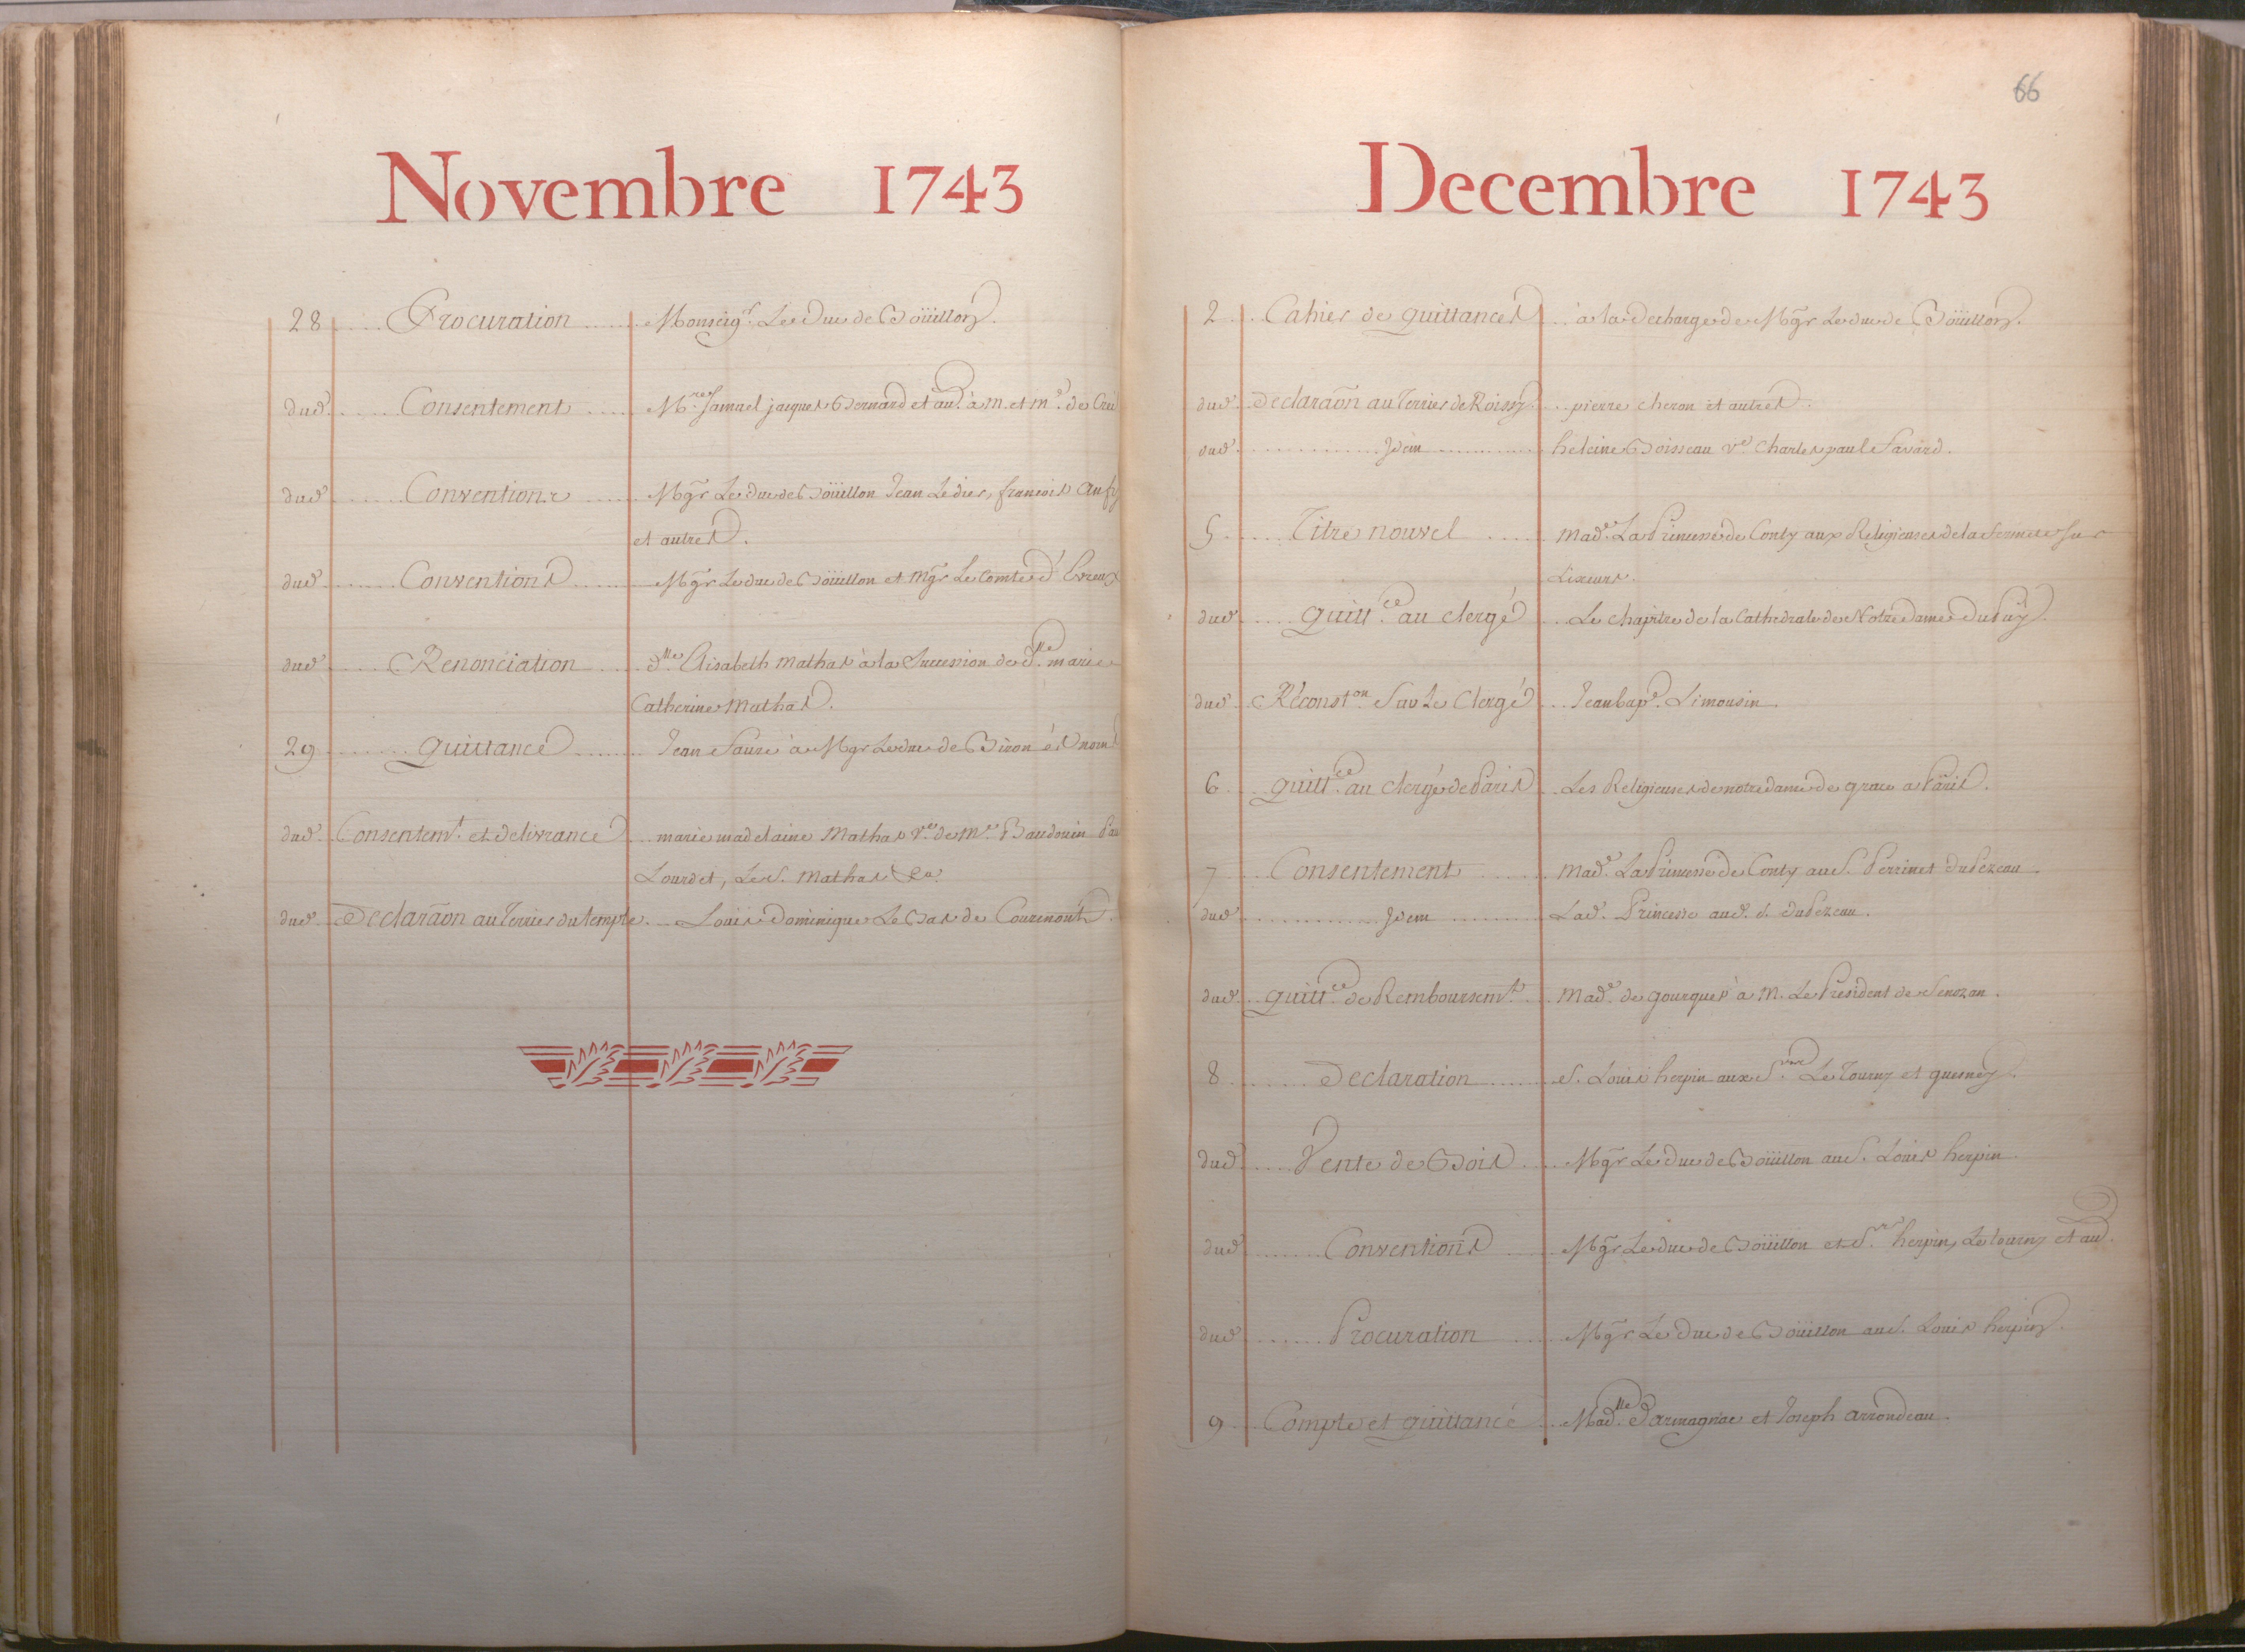 66
Novembre 1743
28 Procuration Monseigr. Le Duc de Boüillon.
dud. Consentement Mres. Samuel jacques Bernard et au. à M. et Me. de
dud. Conventions Mgr Le Duc de Boüillon Jean Ledier, francois
et autres.
dud. Conventions Mgr Le duc de Boüillon et Mgr Le Comte d'Evreux
dud. Renonciation dlle. Elisabeth Mathas à la Succession de dlle. marie
Catherine Mathas.
29 Quittance Jean Sauze à Mgr Le duc de Biron ès noms
dud. Consentemt. et delivrance marie madelaine Mathas ve. de Me. Baudouin
Lourdet, Le S. Mathas &a.
dud. Declaraõn au Terrier du temple. Loüis Dominique Le Bas de Courmont.
Decembre 1743
2 Cahier de quittances à la decharge de Mgr Le duc de Boüillon.
dud. Declaraõn au Terrier de Roissy. pierre cheron et autres.
dud. Idem heleine Boisseau ve. Charles paul Savard.
5 Titre nouvel Made. La Princesse de Conty aux Religieuses de la fermeté sur
Lixeurs.
dud. quittce. au Clergé Le chapitre de la Cathedrale de Notre Dame du Puy.
dud. Réconston. Sur Le Clergé Jean bapt. Limousin.
6 quittce. au Clergé de Paris Les Religieuses de notre dame de grace a Paris.
7 Consentement Made. La Princesse de Conty au S. Perrinet du Pezeau.
dud. Idem Lad. Princesse aud. S. du Pezeau.
dud. quittce. de Remboursemt. Made. de gourgues à M. Le President de Senozan.
8 Declaration S. Louis herpin aux Srs. Le Tourny et quesney.
dud. Vente de Bois Mgr Le Duc de Boüillon au S. Louis herpin.
dud. Conventions Mgr Le duc de Boüillon et Srs. herpin, Le tourny et au.
dud. Procuration Mgr Le Duc de Boüillon au S. Louis herpin.
9 Compte et quittance Madlle. Darmagnac et Joseph arrondeau.